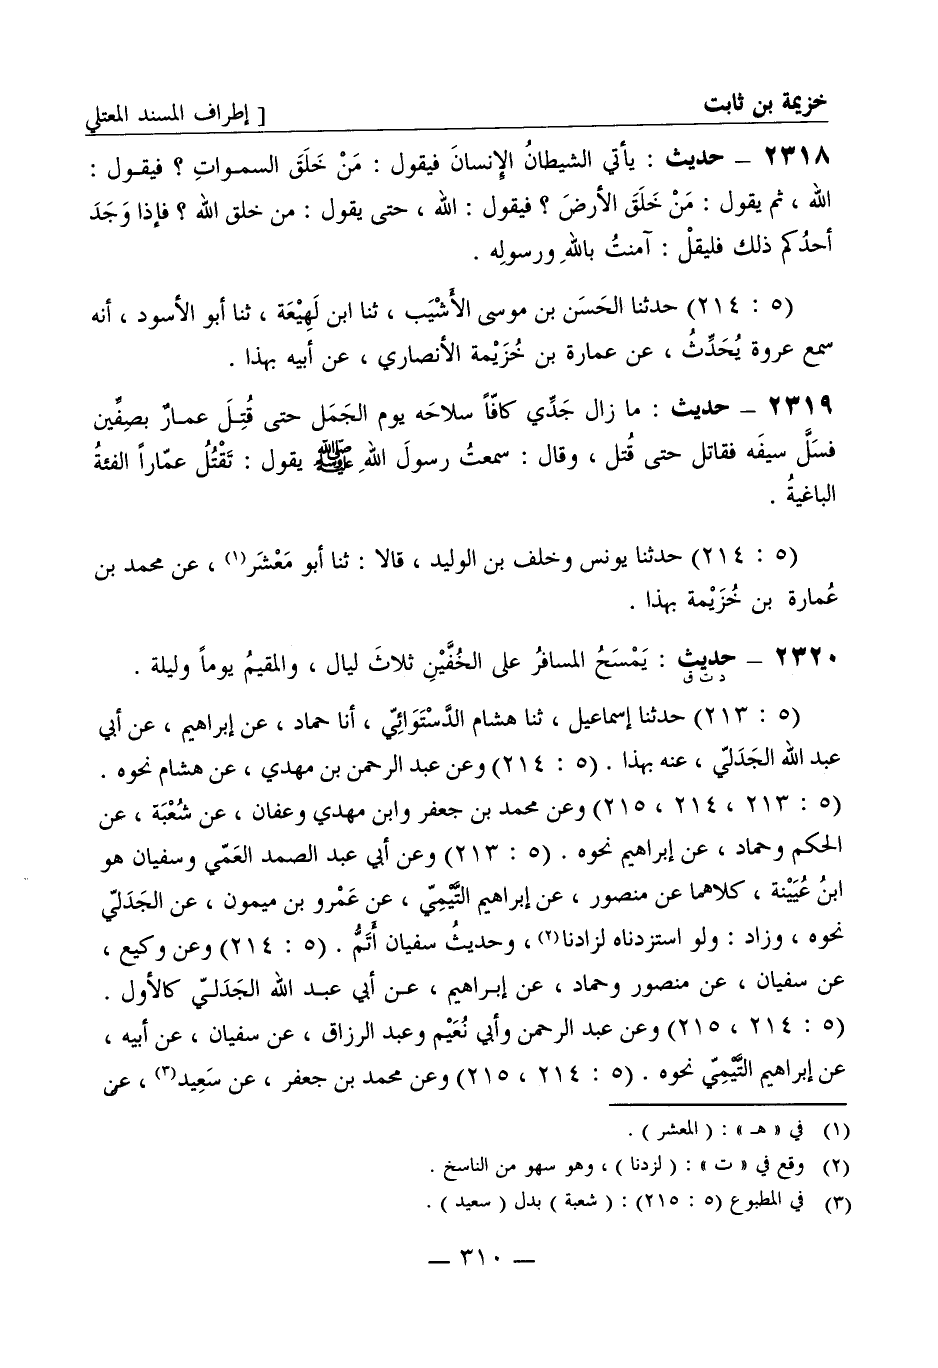 خزيمة بن ثابت
[ إطراف المسند المعتلي
٢٣١٨ – حديث : يأتي الشيطانُ الإِنسانَ فيقول : مَنْ خَلَقَ السمواتِ ؟ فيقول :
الله ، ثم يقول : مَنْ خَلَقَ الأرضَ ؟ فيقول : الله ، حتى يقول : من خلق الله ؟ فإذا وَجَدَ
أحدُكم ذلك فليقلْ : آمنتُ باللهِ ورسولِه .
(٥ : ٢١٤) حدثنا الحَسَن بن موسى الأَشْيَب ، ثنا ابن لَهِيْعَة ، ثنا أبو الأسود ، أنه
سمع عروة يُحَدِّثُ ، عن عمارة بن خُزَيْمة الأنصاري ، عن أبيه بهذا .
٢٣١٩ – حديث : ما زال جَدِّي كافّاً سلاحَه يوم الجَمَل حتى قُتِلَ عمارٌ بصِفِّين
فسَلَّ سيفَه فقاتل حتى قُتل ، وقال : سمعتُ رسولَ اللهِ ﷺ يقول : تَقْتُلُ عمّاراً الفئةُ
الباغيةُ .
(٥ : ٢١٤) حدثنا يونس وخلف بن الوليد ، قالا : ثنا أبو مَعْشَر(١) ، عن محمد بن
عُمارة بن خُزَيْمة بهذا .
٢٣٢٠ – حديث : يَمْسَحُ المسافرُ على الخُفَّيْنِ ثلاثَ ليال ، والمقيمُ يوماً وليلة .
د ت ق
(٥ : ٢١٣) حدثنا إسماعيل ، ثنا هشام الدَّسْتَوَائيّ ، أنا حماد ، عن إبراهيم ، عن أبي
عبد الله الجَدَليّ ، عنه بهذا . (٥ : ٢١٤) وعن عبد الرحمن بن مهدي ، عن هشام نحوه .
(٥ : ٢١٣ ، ٢١٤ ، ٢١٥) وعن محمد بن جعفر وابن مهدي وعفان ، عن شُعْبَة ، عن
الحكم وحماد ، عن إبراهيم نحوه . (٥ : ٢١٣) وعن أبي عبد الصمد العَمّي وسفيان هو
ابنُ عُيَيْنة ، كلاهما عن منصور ، عن إبراهيم التَّيْمِيّ ، عن عَمْرو بن ميمون ، عن الجَدَليّ
نحوه ، وزاد : ولو استزدناه لزادنا(٢) ، وحديثُ سفيان أَتَمُّ . (٥ : ٢١٤) وعن وكيع ،
عن سفيان ، عن منصور وحماد ، عن إبراهيم ، عن أبي عبد الله الجَدَليّ كالأول .
(٥ : ٢١٤ ، ٢١٥) وعن عبد الرحمن وأبي نُعَيْم وعبد الرزاق ، عن سفيان ، عن أبيه ،
عن إبراهيم التَّيْمِيّ نحوه . (٥ : ٢١٤ ، ٢١٥) وعن محمد بن جعفر ، عن سَعِيد(٣) ، عن
(١) في « هـ » : ( المعشر ) .
(٢) وقع في « ت » : ( لزدنا ) ، وهو سهو من الناسخ .
(٣) في المطبوع (٥ : ٢١٥) : ( شعبة ) بدل ( سعيد ) .
– ٣١٠ –